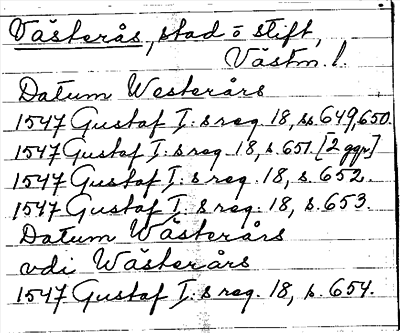 Västerås, stad o stift,
Västm. l.
Datum Westerårs
1547 Gustaf I:s reg. 18, ss. 649, 650.
1547 Gustaf I:s reg. 18, s. 651. [2 ggr]
1547 Gustaf I:s reg. 18, s. 652.
1547 Gustaf I:s reg. 18, s. 653.
Datum Wästerårs
vdi Wästerårs
1547 Gustaf I:s reg. 18, s. 654.